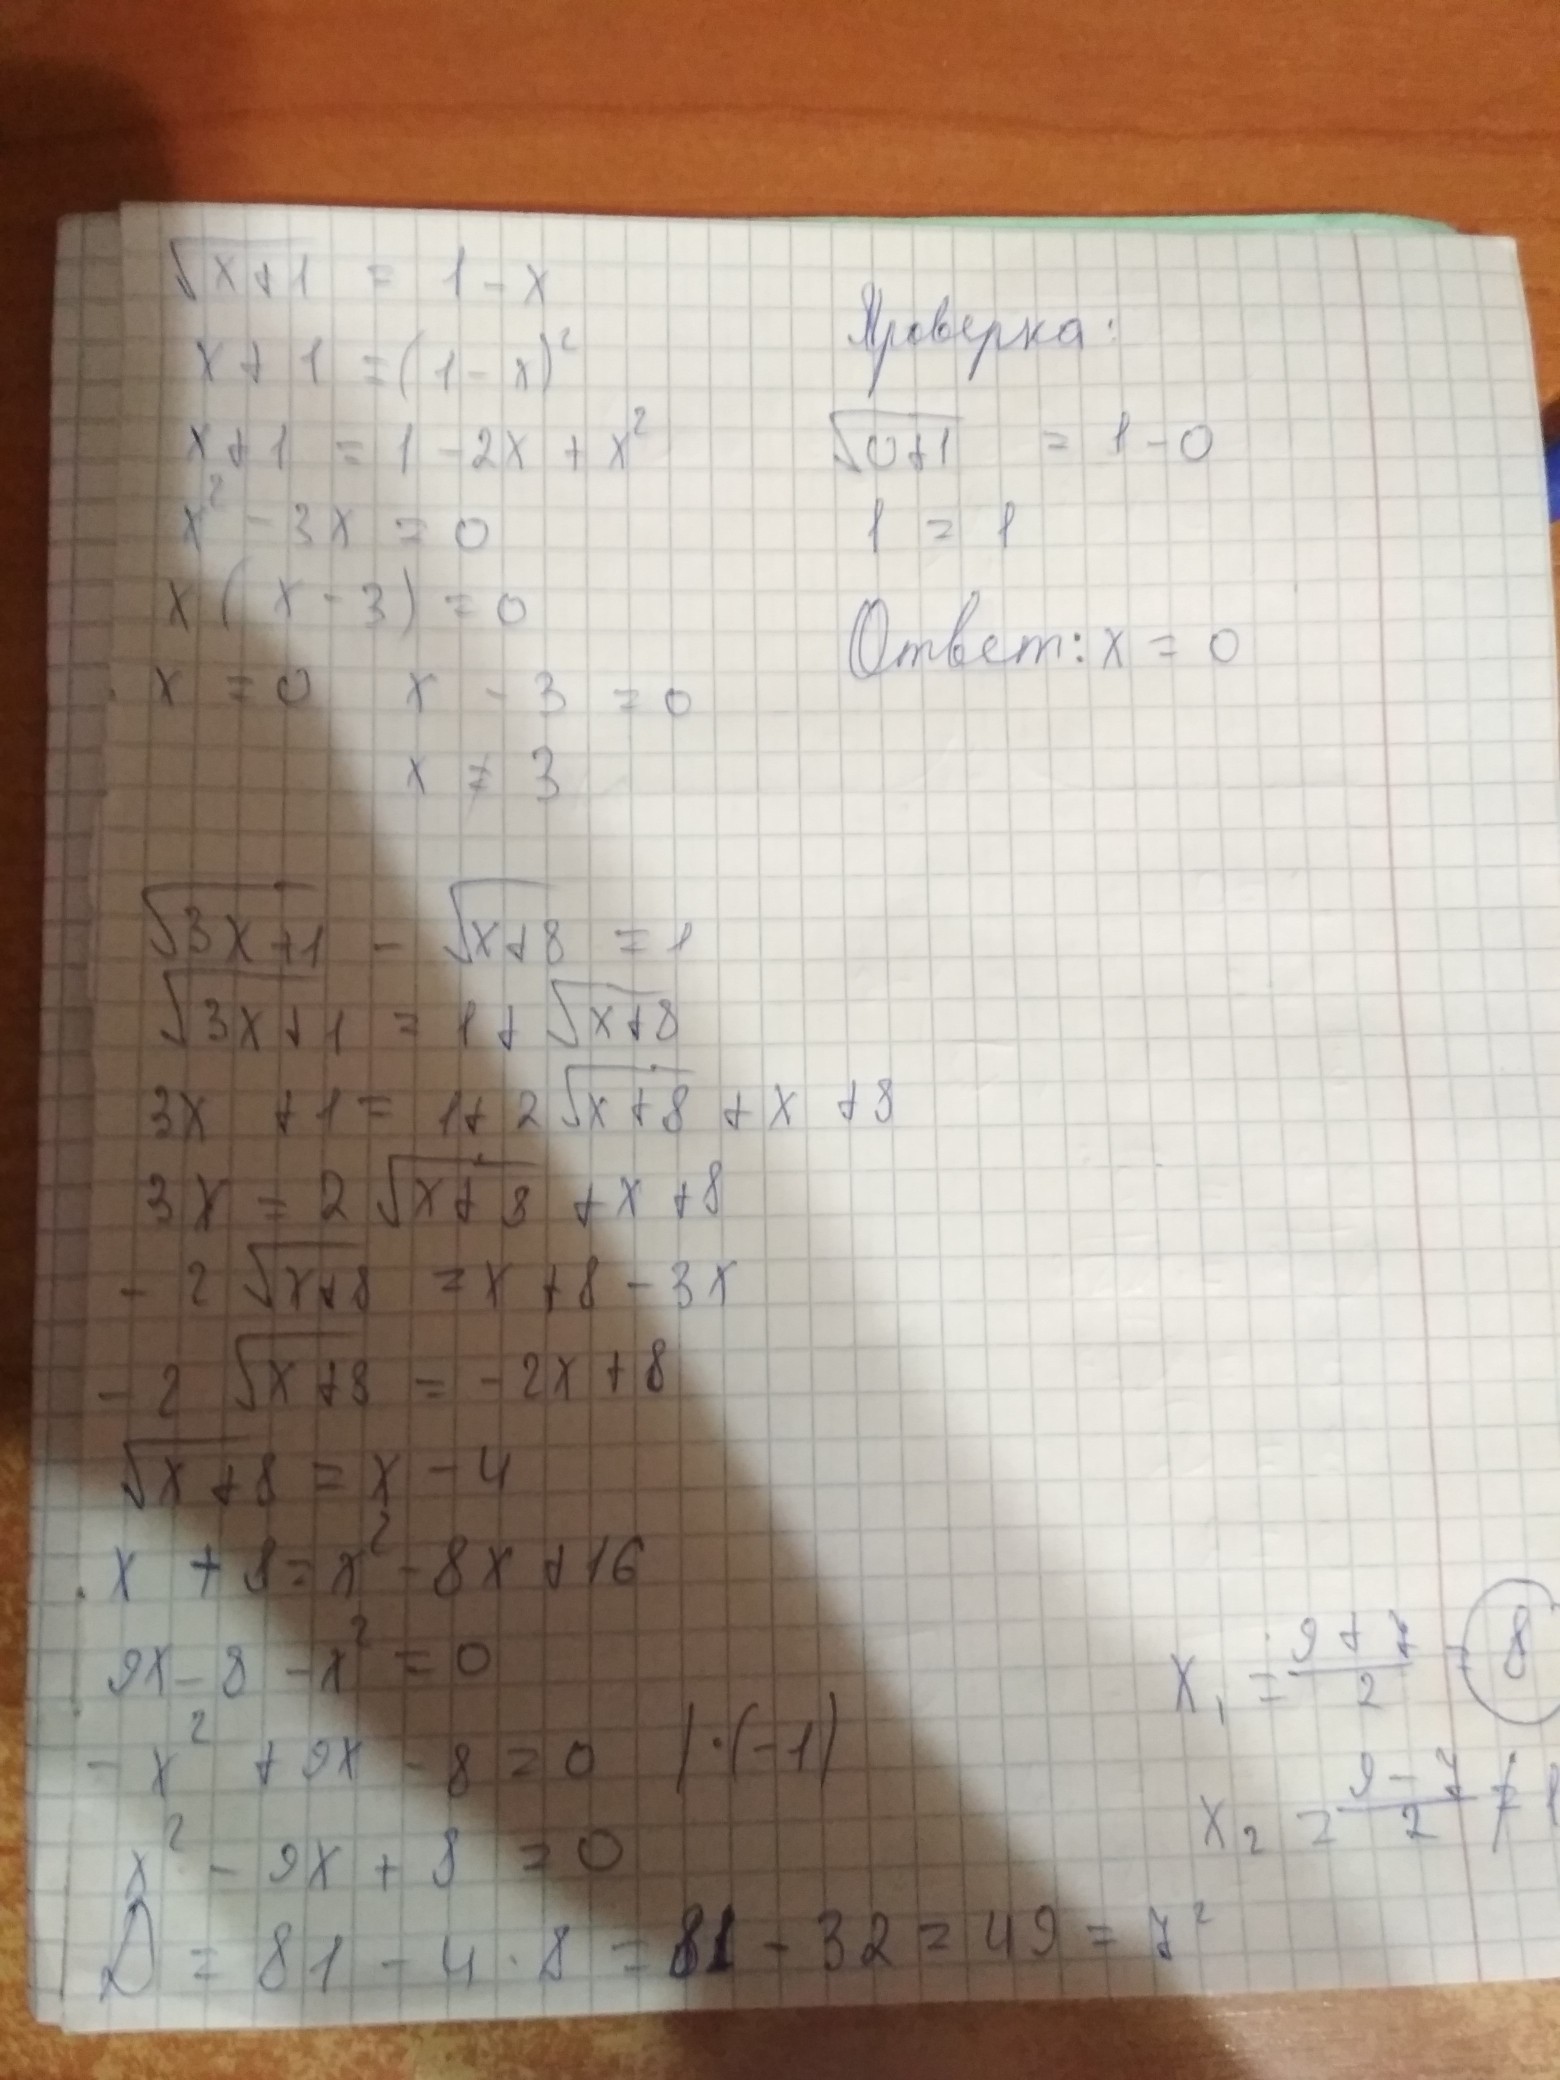 √x+1 = 1 - x
x + 1 = (1 - x)²
x + 1 = 1 - 2x + x²
x² - 3x = 0
x ( x - 3) = 0
x = 0 x - 3 = 0
x ≠ 3
Проверка:
√0+1 = 1 - 0
1 = 1
Ответ: x = 0
√3x+1 - √x+8 = 1
√3x+1 = 1 + √x+8
3x + 1 = 1 + 2√x+8 + x + 8
3x = 2 √x+8 + x + 8
- 2 √x+8 = x + 8 - 3x
- 2 √x+8 = - 2x + 8
√x+8 = x - 4
x + 8 = x² - 8x + 16
9x - 8 - x² = 0
- x² + 9x - 8 = 0 / · (-1)
x² - 9x + 8 = 0
D = 81 - 4 · 8 = 81 - 32 = 49 = 7²
x₁ = (9 + 7)/2 = 8
x₂ = (9 - 7)/2 ≠ 1